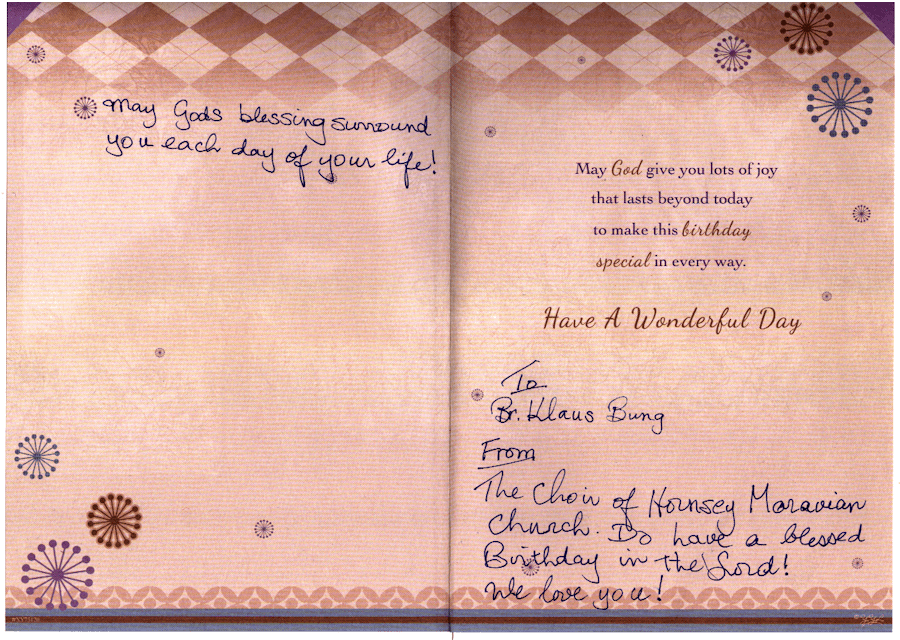 May Gods blessing surround
you each day of your life!
May God give you lots of joy
that lasts beyond today
to make this birthday
special in every way.
Have A Wonderful Day
To
Br. Klaus Bung
From
The Choir of Hornsey Moravian
Church. Do have a blessed
Birthday in the Lord!
We love you!